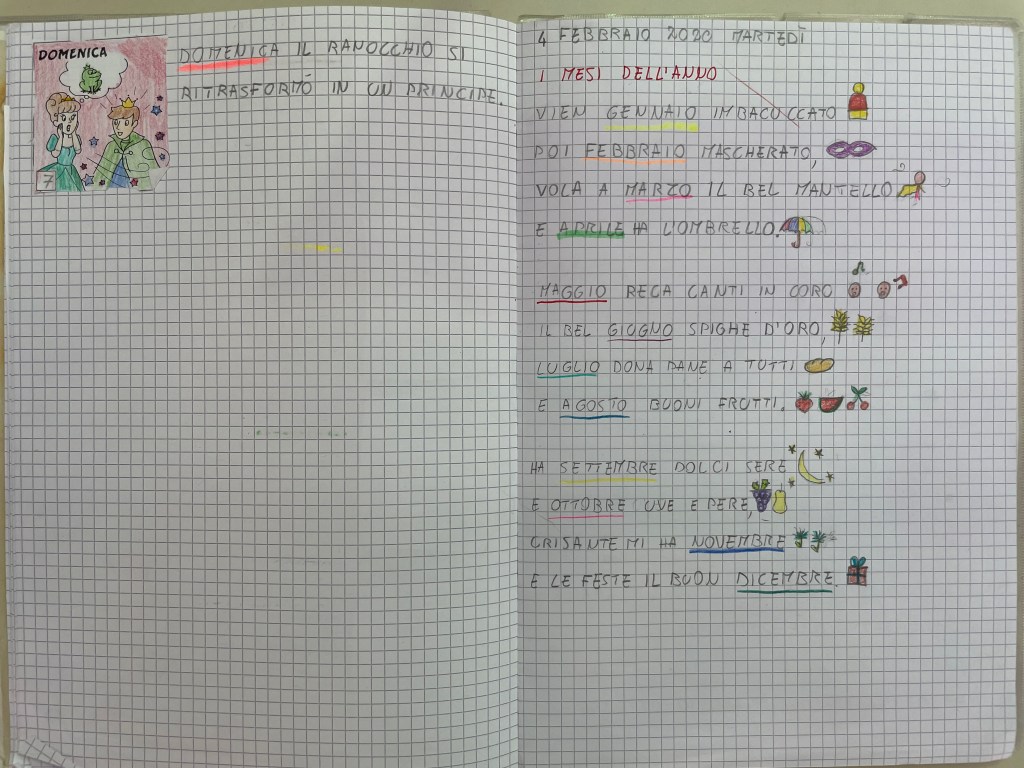 DOMENICA
7
DOMENICA IL RANOCCHIO SI
RITRASFORMÒ IN UN PRINCIPE.
4 FEBBRAIO 2020 MARTEDÌ
I MESI DELL'ANNO
VIEN GENNAIO IMBACUCCATO
POI FEBBRAIO MASCHERATO,
VOLA A MARZO IL BEL MANTELLO
E APRILE HA L'OMBRELLO.
MAGGIO RECA CANTI IN CORO
IL BEL GIUGNO SPIGHE D'ORO,
LUGLIO DONA PANE A TUTTI
E AGOSTO BUONI FRUTTI.
HA SETTEMBRE DOLCI SERE
E OTTOBRE UVE E PERE,
CRISANTEMI HA NOVEMBRE
E LE FESTE IL BUON DICEMBRE.